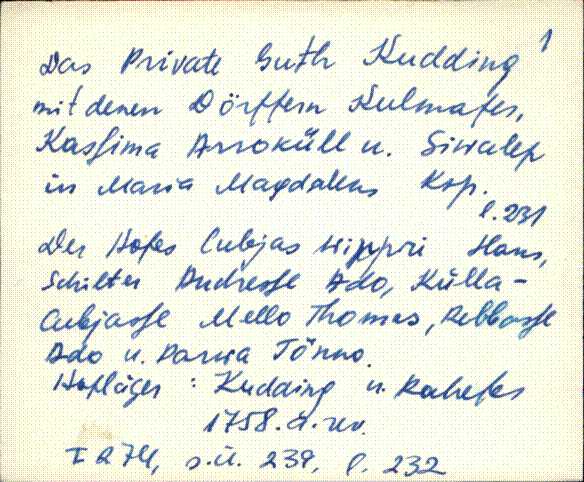 1
Das Private Guth Kudding
mit denen Dörffern Kulmafer,
Kassima Arroküll u. Sirralep
in Maria Magdalens Ksp.
l. 231
Der Hofes Cubjas Hans,
Schilter Andresse Ado, Külla-
Cubjasse Mello Thomas, Rebbasse
Ado u. Parwa Tönno.
Hofläger: Kudding u. Rahefer
1758. a. rev.
s.ü. 239, l. 232